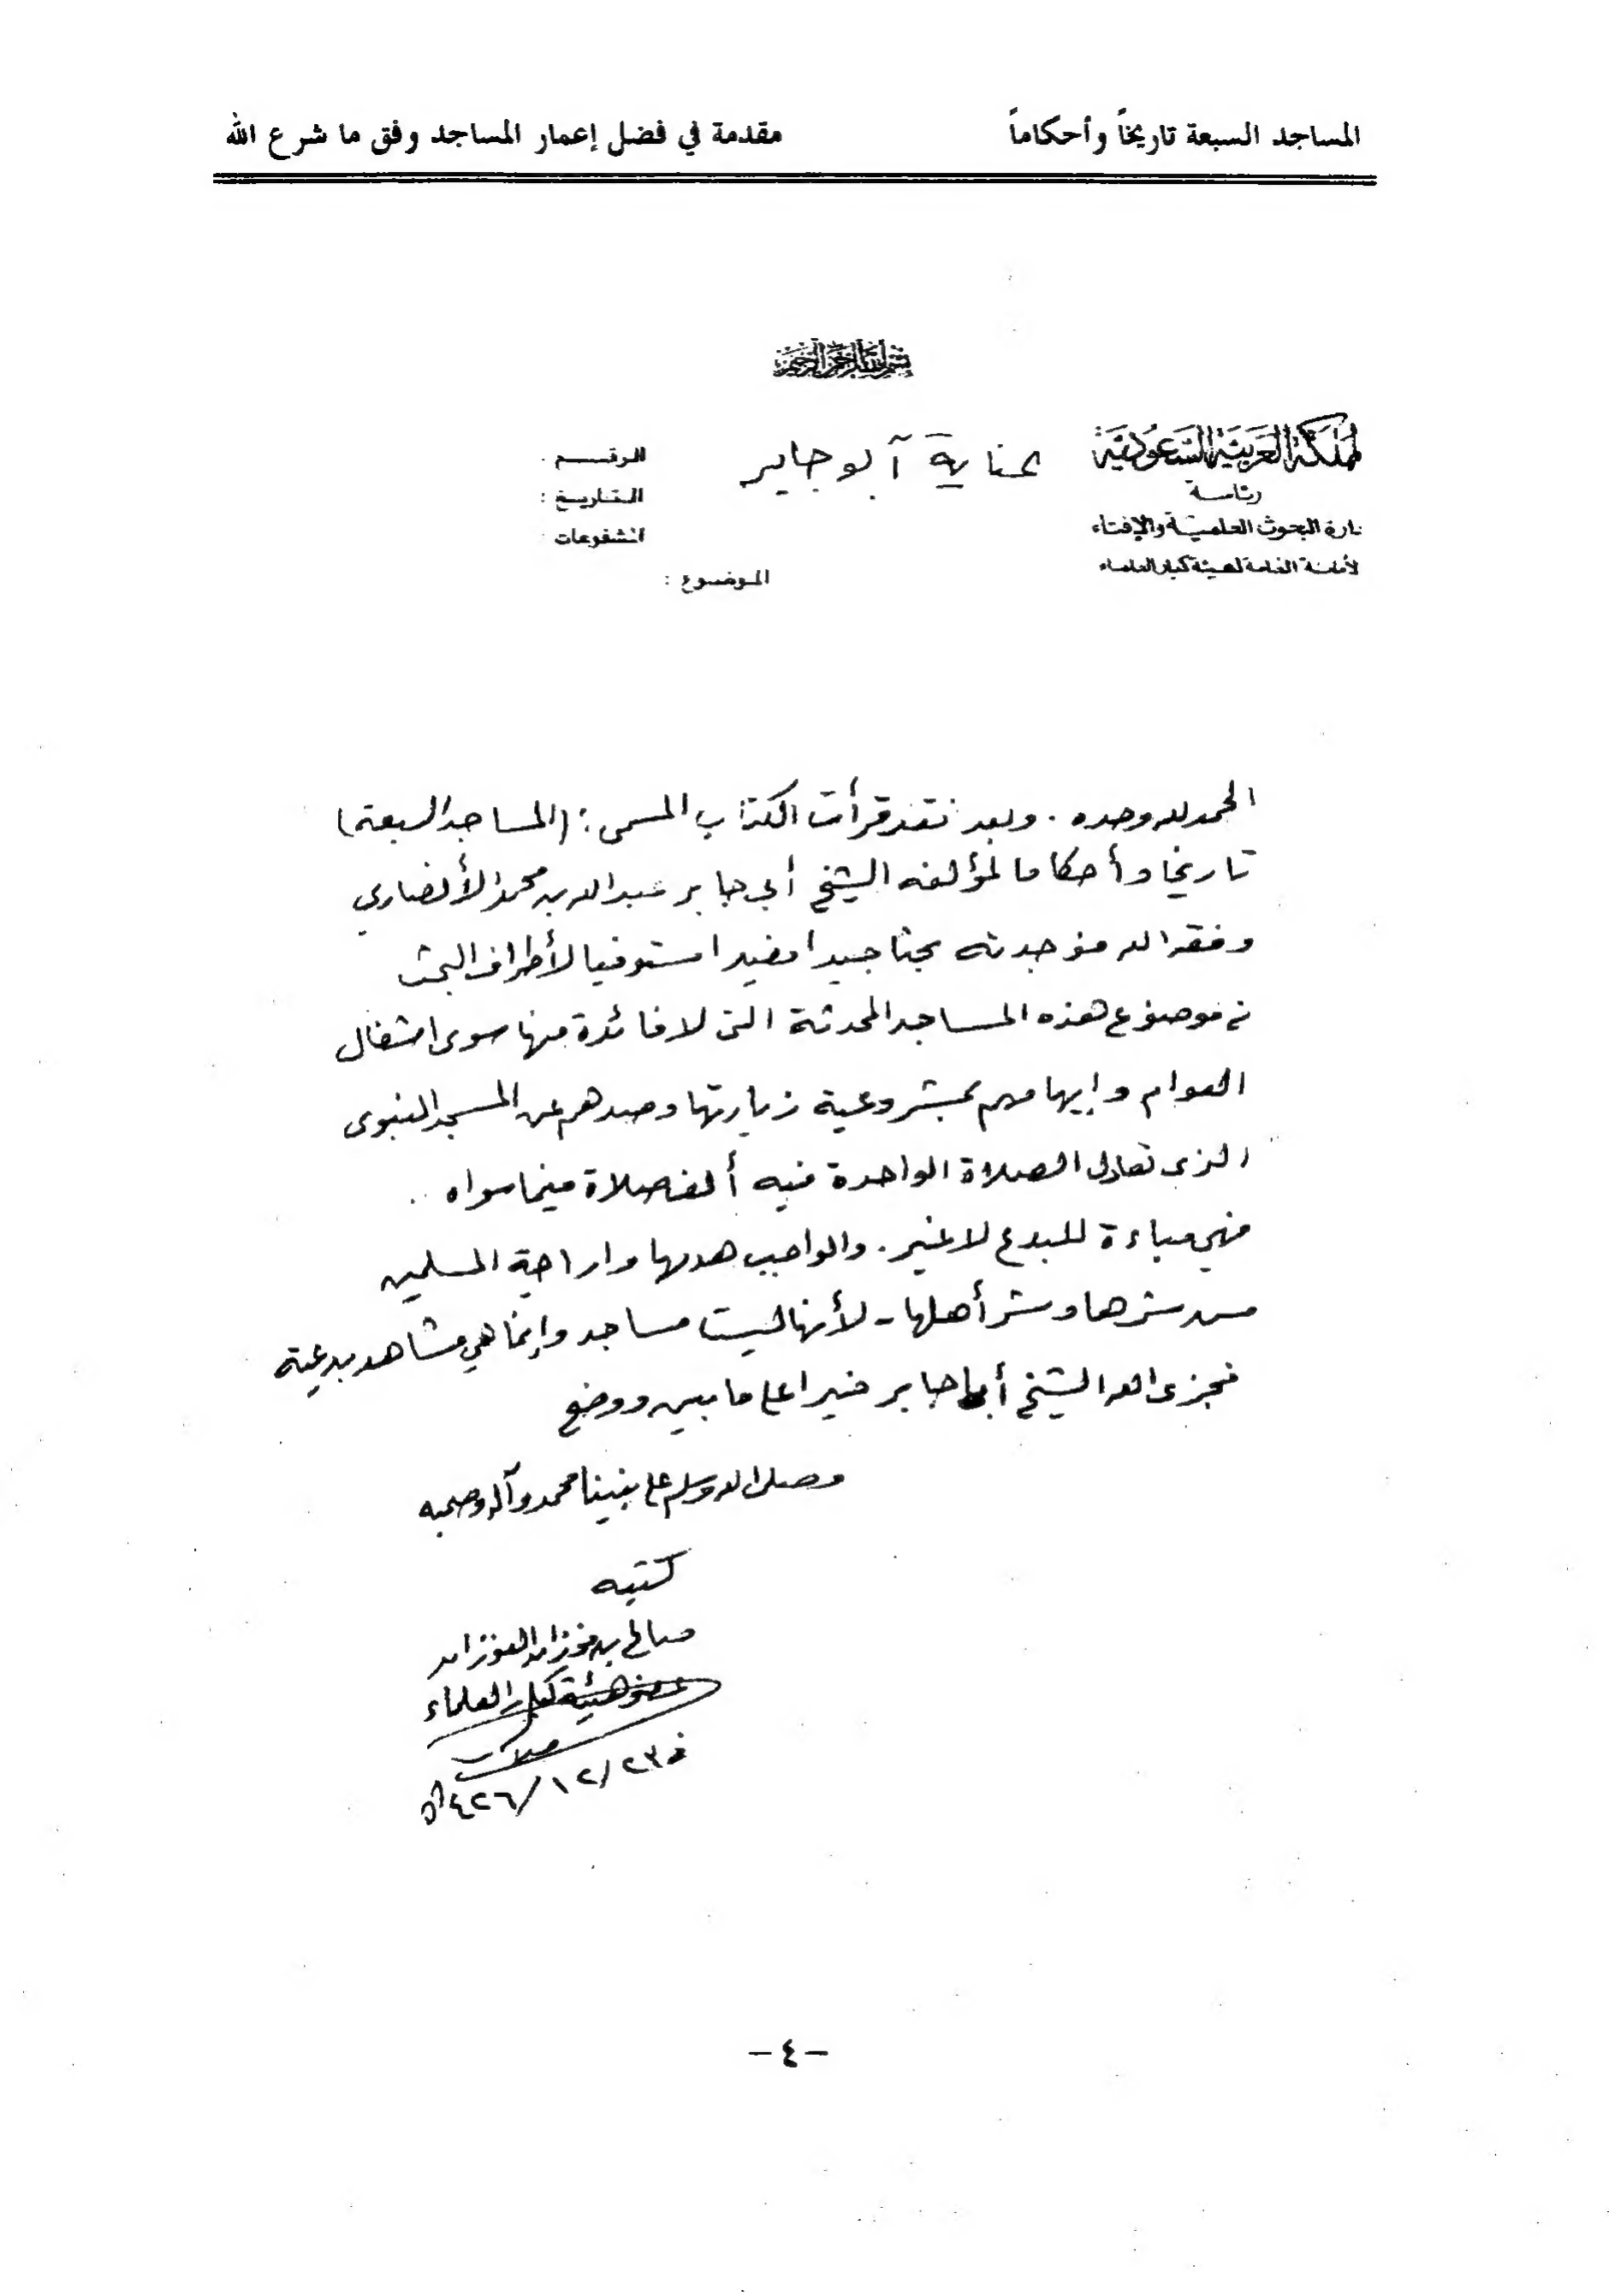 المساجد السبعة تاريخاً وأحكاماً
مقدمة في فضل إعمار المساجد وفق ما شرع الله
بسم الله الرحمن الرحيم
المملكة العربية السعودية
رئاسة
إدارة البحوث العلمية والإفتاء
الأمانة العامة لهيئة كبار العلماء
عناية أبو جابر
الرقم :
التاريخ :
المشفوعات :
الموضوع :
الحمد لله وحده . وبعد فقد قرأت الكتاب المسمى : (المساجد السبعة)
تاريخا وأحكاما لمؤلفه الشيخ أبي جابر عبدالله بن محمد الأنصاري
وفقه الله فوجدته بحثا جيدا مفيدا مستوفيا لأطراف البحث
في موضوع هذه المساجد المحدثة التي لا فائدة منها سوى اشغال
العوام وإيهامهم بمشروعية زيارتها وصدهم عن المسجد النبوى
الذى تعادل الصلاة الواحدة فيه ألف صلاة فيما سواه ..
فهي مباءة للبدع لا غير . والواجب هدمها واراحة المسلمين
من شرها وشر أهلها - لأنها ليست مساجد وإنما هي مشاهد بدعية
فجزى الله الشيخ أبا جابر خيرا على ما بين ووضح
وصلى الله وسلم على نبينا محمد وآله وصحبه
كتبه
صالح بن فوزان الفوزان
عضو هيئة كبار العلماء
في ٢٣/١٢/١٤٢٦هـ
- ٤ -